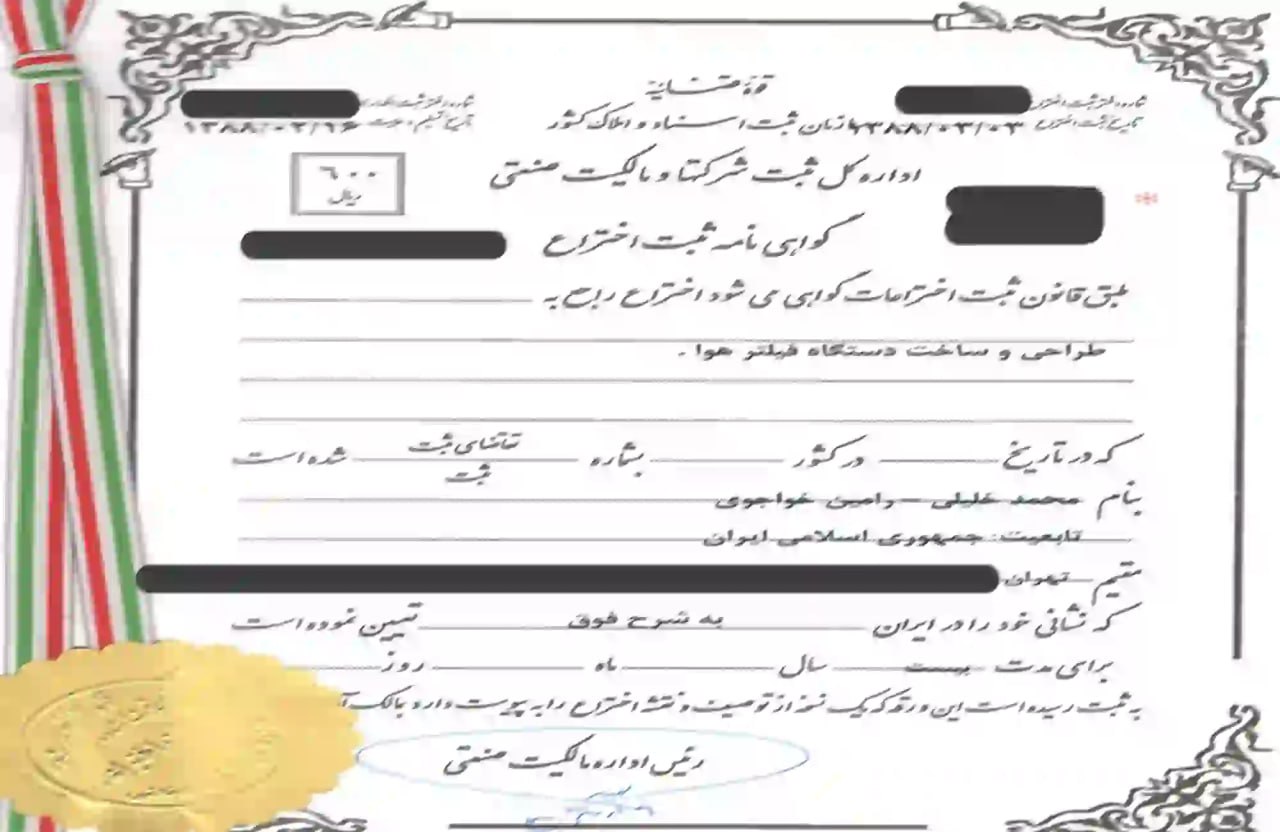 قوهٔ قضائیه
شماره دفتر ثبت اختراع
تاریخ ثبت اختراع ۱۳۸۸/۰۳/۰۳
سازمان ثبت اسناد و املاک کشور
تاریخ تسلیم
اداره کل ثبت شرکتها و مالکیت صنعتی
۶۰۰
ریال
گواهی نامه ثبت اختراع
طبق قانون ثبت اختراعات گواهی می شود اختراع راجع به
طراحی و ساخت دستگاه فیلتر هوا .
که در تاریخ در کشور بشماره تقاضای ثبت شده است
ثبت
بنام محمد خلیلی - رامین خواجوی
تابعیت: جمهوری اسلامی ایران
مقیم تهران
که نشانی خود را در ایران به شرح فوق تعیین نموده است
برای مدت بیست سال ماه روز
به ثبت رسیده است این ورقه که یک نسخه از توصیف و نقشه اختراع را به پیوست دارد بمالک
رئیس اداره مالکیت صنعتی